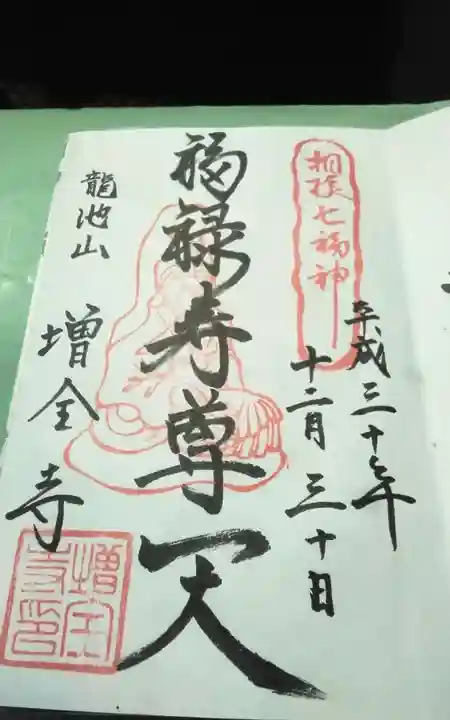 相模七福神
平成三十年
十二月三十日
福禄寿尊天
龍池山
増全寺
増全寺印